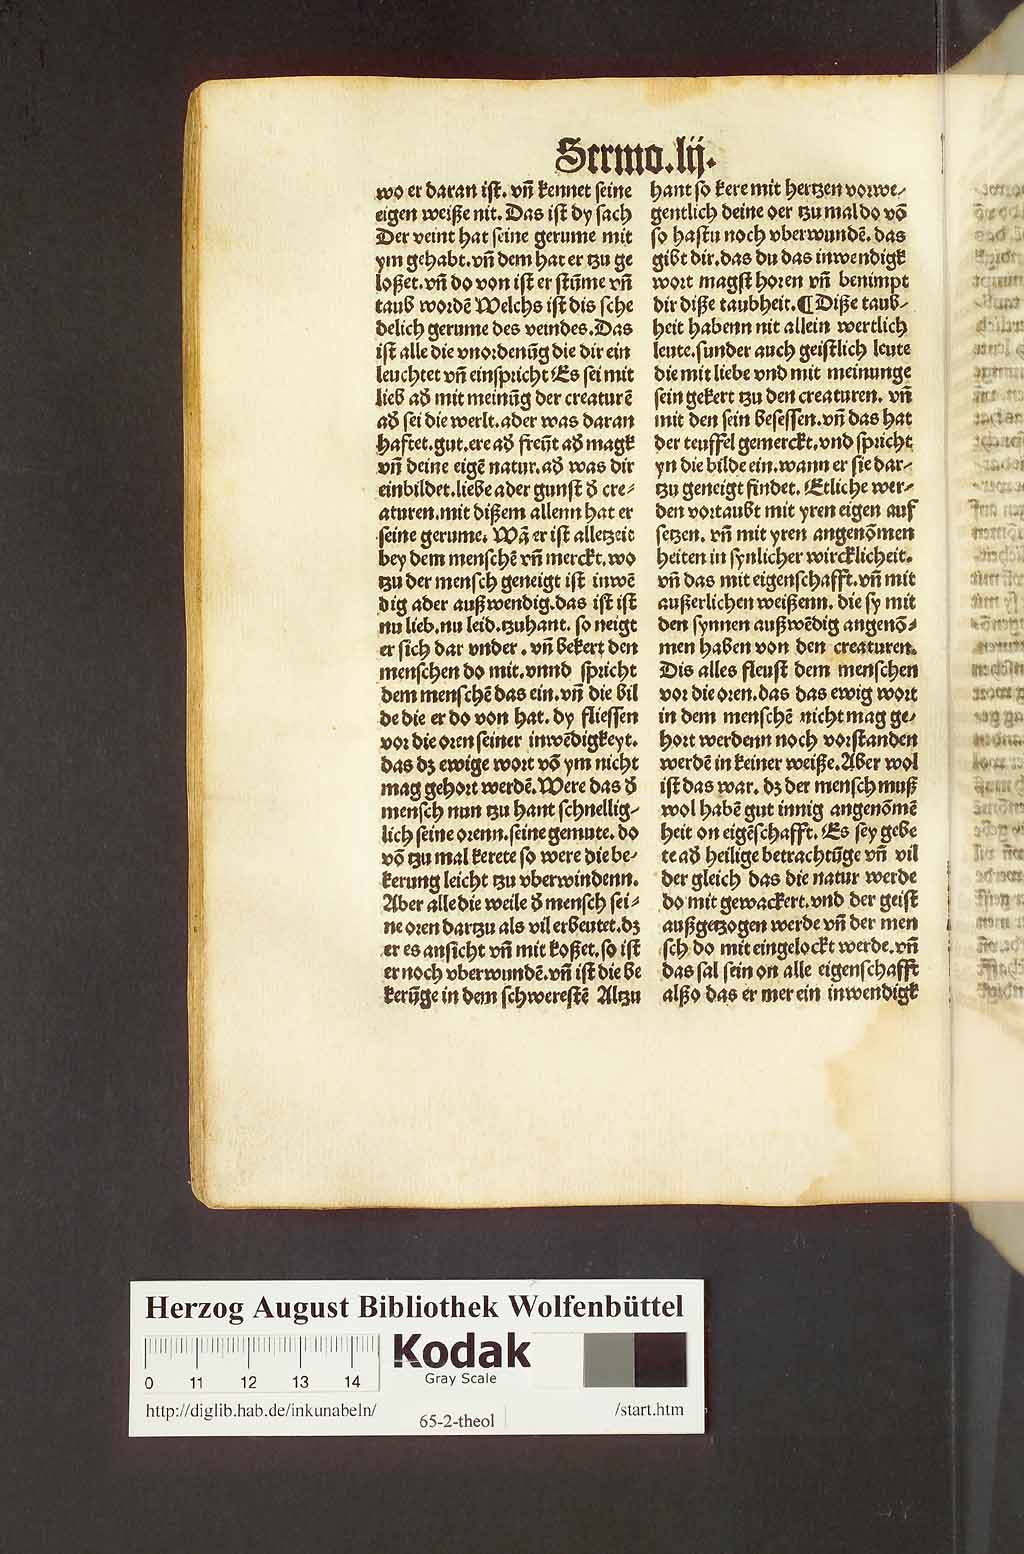 Sermo.lij.
wo er daran ist. vñ kennet seine
eigen weiße nit. Das ist dy sach
Der veint hat seine gerume mit
ym gehabt. vñ dem hat er tzu ge
loßet. vñ do von ist er stũme vñ
taub wordẽ Welchs ist dis sche
delich gerume des veindes. Das
ist alle die vnordenũg die dir ein
leuchtet vñ einspricht Es sei mit
lieb ad̓ mit meinũg der creaturẽ
ad̓ sei die werlt. ader was daran
haftet. gut. ere ad̓ freũt ad̓ magk
vñ deine eigẽ natur. ad̓ was dir
einbildet. liebe ader gunst d̓ cre-
aturen. mit dißem allenn hat er
seine gerume. Wã er ist alletzeit
bey dem menschẽ vñ merckt. wo
tzu der mensch geneigt ist inwẽ
dig ader außwendig. das ist ist
nu lieb. nu leid. tzuhant. so neigt
er sich dar vnder. vñ bekert den
menschen do mit. vnnd spricht
dem menschẽ das ein. vñ die bil
de die er do von hat. dy fliessen
vor die oren seiner inwẽdigkeyt.
das dz ewige wort võ ym nicht
mag gehort werdẽ. Were das d̓
mensch nun tzu hant schnellig-
lich seine orenn. seine gemute. do
võ tzu mal kerete so were die be-
kerung leicht tzu vberwindenn.
Aber alle die weile d̓ mensch sei-
ne oren dartzu als vil erbeutet. dz
er es ansicht vñ mit koßet. so ist
er noch vberwundẽ. vñ ist die be
kerũge in dem schwerestẽ Altzu
hant so kere mit hertzen vorwe-
gentlich deine oer tzu mal do võ
so hastu noch vberwundẽ. das
gibt dir. das du das inwendigk
wort magst horen vñ benimpt
dir diße taubheit. ¶ Diße taub-
heit habenn nit allein wertlich
leute. sunder auch geistlich leute
die mit liebe vnd mit meinunge
sein gekert tzu den creaturen. vñ
mit den sein besessen. vñ das hat
der teuffel gemerckt. vnd spricht
yn die bilde ein. wann er sie dar-
tzu geneigt findet. Etliche wer-
den vortaubt mit yren eigen auf
setzen. vñ mit yren angenõmen
heiten in synlicher wircklicheit.
vñ das mit eigenschafft. vñ mit
außerlichen weißenn. die sy mit
den synnen außwẽdig angenõ-
men haben von den creaturen.
Dis alles fleust dem menschen
vor die oren. das das ewig wort
in dem menschẽ nicht mag ge-
hort werdenn noch vorstanden
werdẽ in keiner weiße. Aber wol
ist das war. dz der mensch muß
wol habẽ gut innig angenõmẽ
heit on eigẽschafft. Es sey gebe
te ad̓ heilige betrachtũge vñ vil
der gleich das die natur werde
do mit gewackert. vnd der geist
außgetzogen werde vñ der men
sch do mit eingelockt werde. vñ
das sal sein on alle eigenschafft
alßo das er mer ein inwendigk
Herzog August Bibliothek Wolfenbüttel
0 11 12 13 14
Kodak
Gray Scale
http://diglib.hab.de/inkunabeln/
65-2-theol
/start.htm